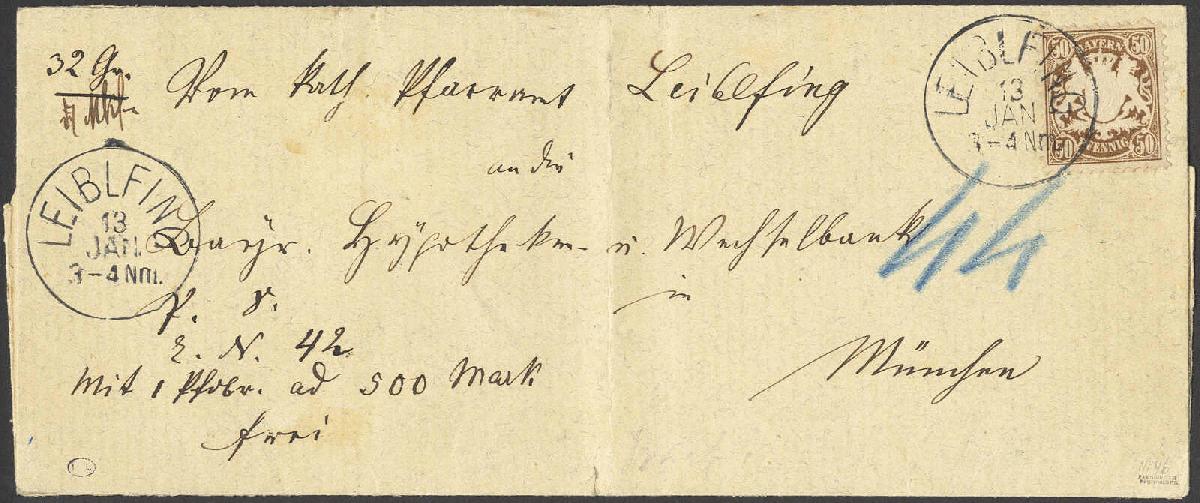 32 Gr.
Vom kath. Pfarramt Leiblfing
an die
Bayr. Hypotheken- u. Wechselbank
in
München
P. S.
L. N. 42
Mit 1 Pfdbr. ad 500 Mark
frei
44
LEIBLFING
13
JAN.
3-4 Nm.
LEIBLFING
13
JAN
3-4 Nm.
50 BAYERN 50
50 PFENNIG 50